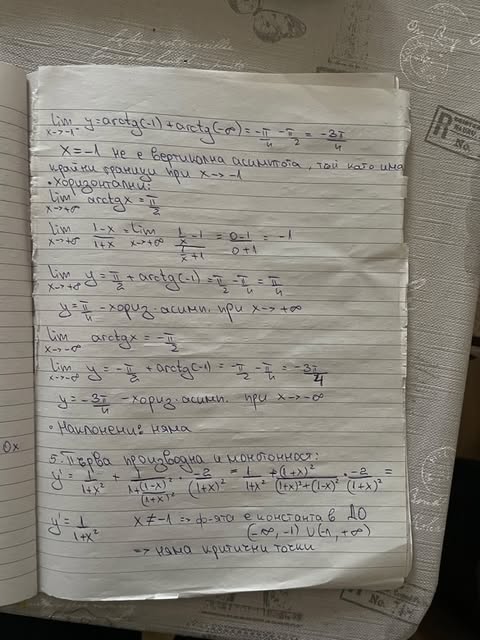 lim y = arctg(-1) + arctg(-∞) = -π/4 - π/2 = -3π/4
x→-1⁻
x = -1 не е вертикална асимптота, тъй като има
крайни граници при x→-1
• Хоризонтални:
lim arctgx = π/2
x→+∞
lim (1-x)/(1+x) = lim (1/x - 1)/(1/x + 1) = (0-1)/(0+1) = -1
x→+∞ x→+∞
lim y = π/2 + arctg(-1) = π/2 - π/4 = π/4
x→+∞
y = π/4 - хориз. асимп. при x→+∞
lim arctgx = -π/2
x→-∞
lim y = -π/2 + arctg(-1) = -π/2 - π/4 = -3π/4
x→-∞
y = -3π/4 - хориз. асимп. при x→-∞
• Наклонени: няма
Ox
5. Първа производна и монотонност:
y' = 1/(1+x²) + 1/(1+(1-x)²/(1+x)²) · -2/(1+x)² = 1/(1+x²) + (1+x)²/((1+x)²+(1-x)²) · -2/(1+x)² =
y' = 1/(1+x²) x ≠ -1 => ф-ята е константа в ДО
(-∞, -1) ∪ (-1, +∞)
=> няма критични точки
R
No.
No.